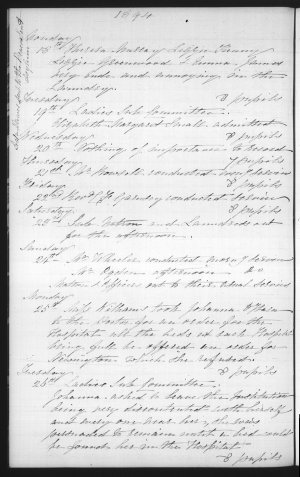 1894
Monday
18th Theresa Murray Lizzie Tunny
Lizzie Greenwood & Emma James
very rude and annoying in the
Laundry.
8 pupils
Tuesday
19th Ladies Sub Committee.
Elizabeth Margaret Small admitted
8 pupils
Wednesday
20th Nothing of importance to record
7 pupils
Thursday
21st Mr conducted service
8 pupils
Friday
22nd conducted Service
8 pupils
Saturday
23rd Sub Matron and Laundress out
for the afternoon.
Sunday
24th Mr Wheeler conducted morng Service
Mr Ogden afternoon do
Matron & Officer out to their usual Service
Monday
25th Miss Williams took Johanna
to the Doctor for an order for the
Hospital all the beds in East Hospital
being full he offered an order for
Newington which she refused.
8 pupils
Tuesday
26th Ladies Sub Committee.
Johanna asked to leave the Institution
being very discontented with herself
and every one near her, she was
persuaded to remain until a bed could
be found her in the Hospital
8 pupils